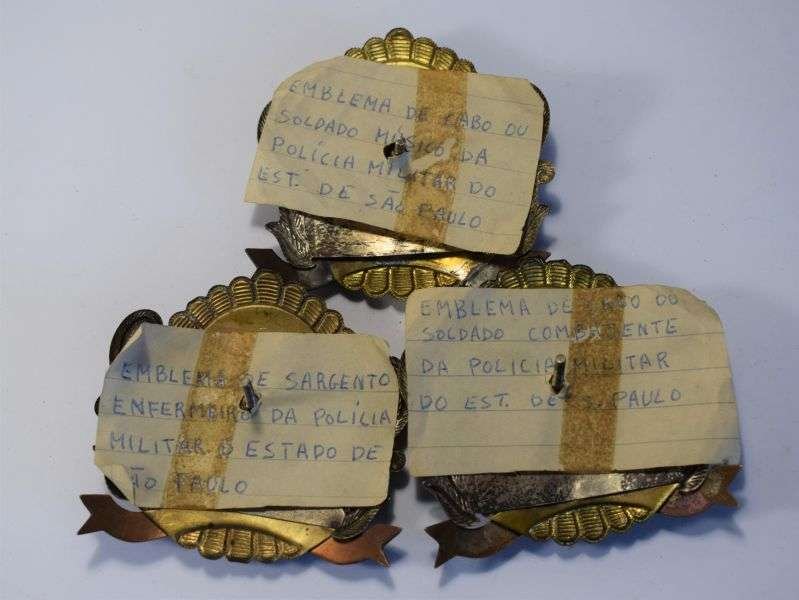 EMBLEMA DE CABO OU
SOLDADO MÚSICO DA
POLÍCIA MILITAR DO
EST. DE SÃO PAULO
EMBLEMA DE SARGENTO
ENFERMEIRO DA POLÍCIA
MILITAR O ESTADO DE
ÃO PAULO
EMBLEMA DE CABO OU
SOLDADO COMBATENTE
DA POLICIA MILITAR
DO EST. DE S. PAULO